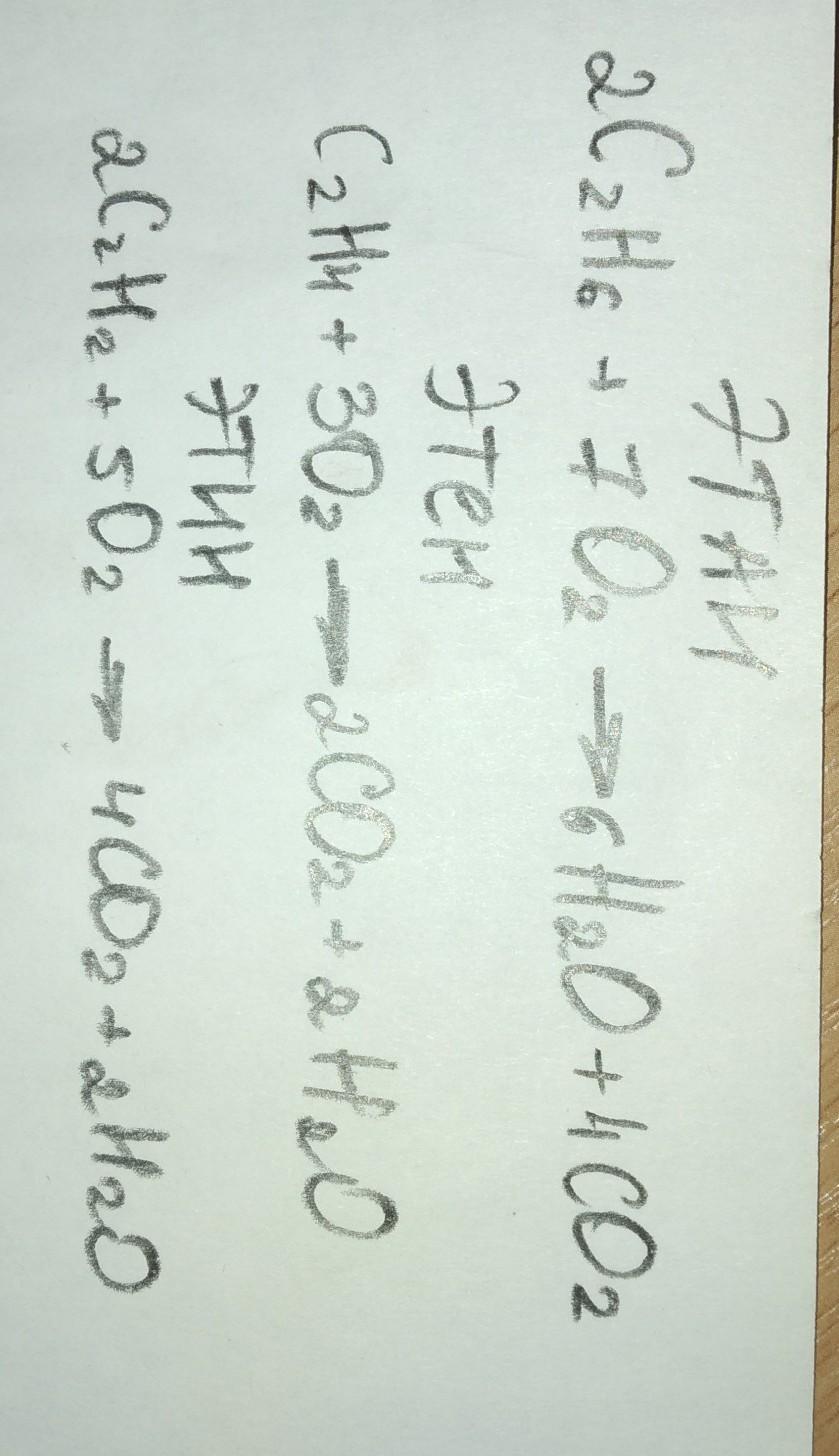 этан
2C₂H₆ + 7O₂ → 6H₂O + 4CO₂
этен
C₂H₄ + 3O₂ → 2CO₂ + 2H₂O
этин
2C₂H₂ + 5O₂ → 4CO₂ + 2H₂O